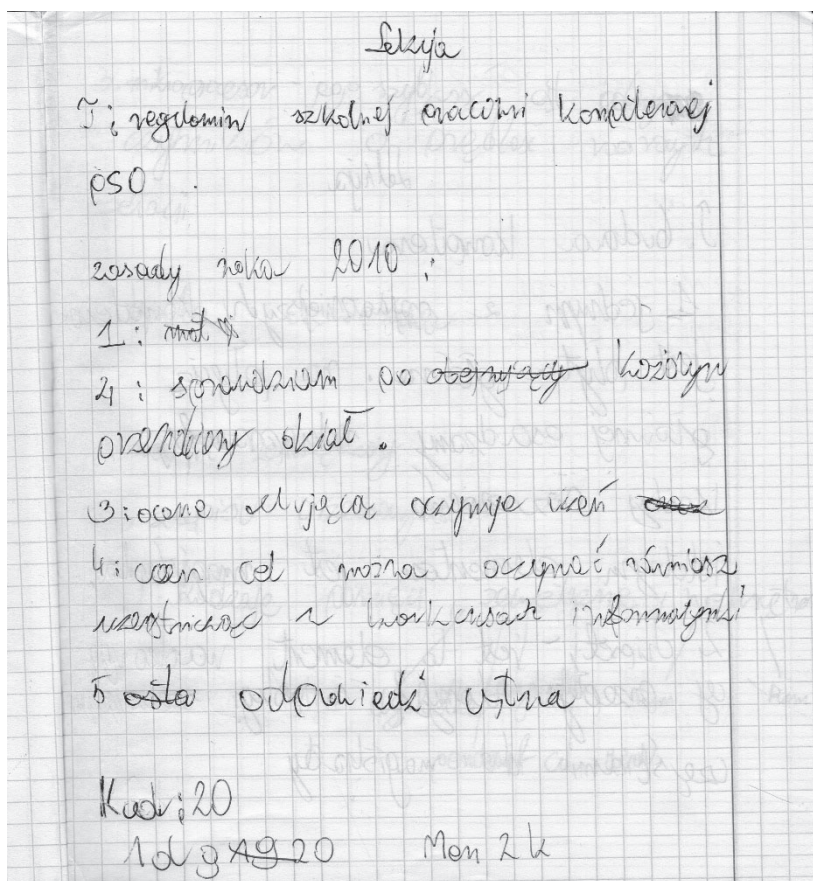 Lekcja
T: regulomin szkolnej pracowni komputerowej
PSO.
zasady roku 2010:
1:
2: sprawdziam po każdym
przerobiony dział.
3: ocene celującą oczymuje uczeń
4: ocen cel można oczymać również
uczestnicząc w konkursach informatyki
5 odpowiedź ustna
Kudv: 20
1d g 20 Men 2 k